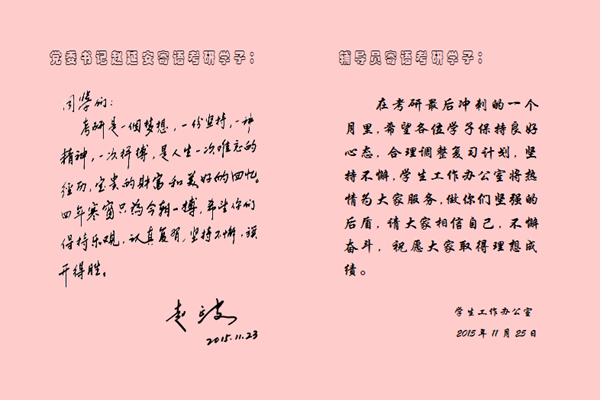 党委书记赵延安寄语考研学子：
同学们：
考研是一個梦想，一份坚持，一种
精神，一次拼搏，是人生一次难忘的
经历，宝贵的财富和美好的回忆。
四年寒窗只为今朝一搏，希望你们
保持乐观，认真复习，坚持不懈，旗
开得胜。
赵延安
2015.11.23
辅导员寄语考研学子：
在考研最后冲刺的一个
月里，希望各位学子保持良好
心态，合理调整复习计划，坚
持不懈，学生工作办公室将热
情为大家服务，做你们坚强的
后盾，请大家相信自己，不懈
奋斗，祝愿大家取得理想成
绩。
学生工作办公室
2015年11月25日